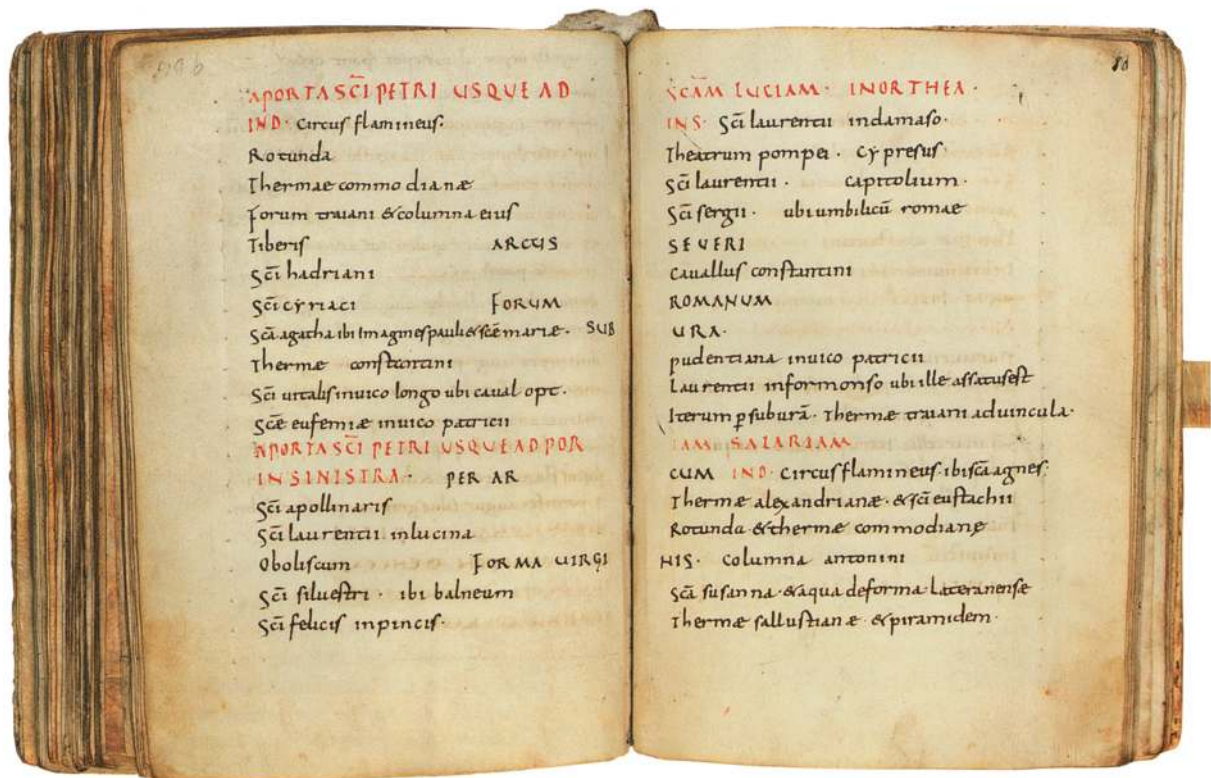 79 b
APORTA SC̄I PETRI USQUE AD
IND· Circus flamineus·
Rotunda
Thermae commodianæ
forum traiani & columna eius
Tiberis ARCUS
Sc̄i hadriani
Sc̄i cyriaci FORUM
Sc̄a agatha ibi imagines pauli & sc̄e mariæ· SUB
Thermæ constantini
Sc̄i uitalis inuico longo ubi caual opt·
Sc̄e eufemiæ inuico patricii
APORTA SC̄I PETRI USQUE AD POR
IN SINISTRA PER AR
Sc̄i apollinaris
Sc̄i laurentii inlucina
Oboliscum FORMA UIRGI
Sc̄i siluestri· ibi balneum
Sc̄i felicis inpincis·
80
SC̄AM LUCIAM· INORTHEA·
INS· Sc̄i laurentii indamaso·
Theatrum pompei· Cypresus
Sc̄i laurentii· capitolium·
Sc̄i sergii· ubi umbilicū romae
SEUERI
Cauallus constantini
ROMANUM
URA·
pudentiana inuico patricii
Laurentii informonso ubi ille assatus est
Iterum p̱ suburā· Thermæ traiani aduincula·
TAM SALARIAM
CUM IND· Circus flamineus· ibi sc̄a agnes·
Thermæ alexandrianæ· & sc̄i eustachii
Rotunda & thermæ commodianę
NIS· Columna antonini
Sc̄a susanna· & aqua deforma lateranense
Thermæ sallustianæ· & piramidem·